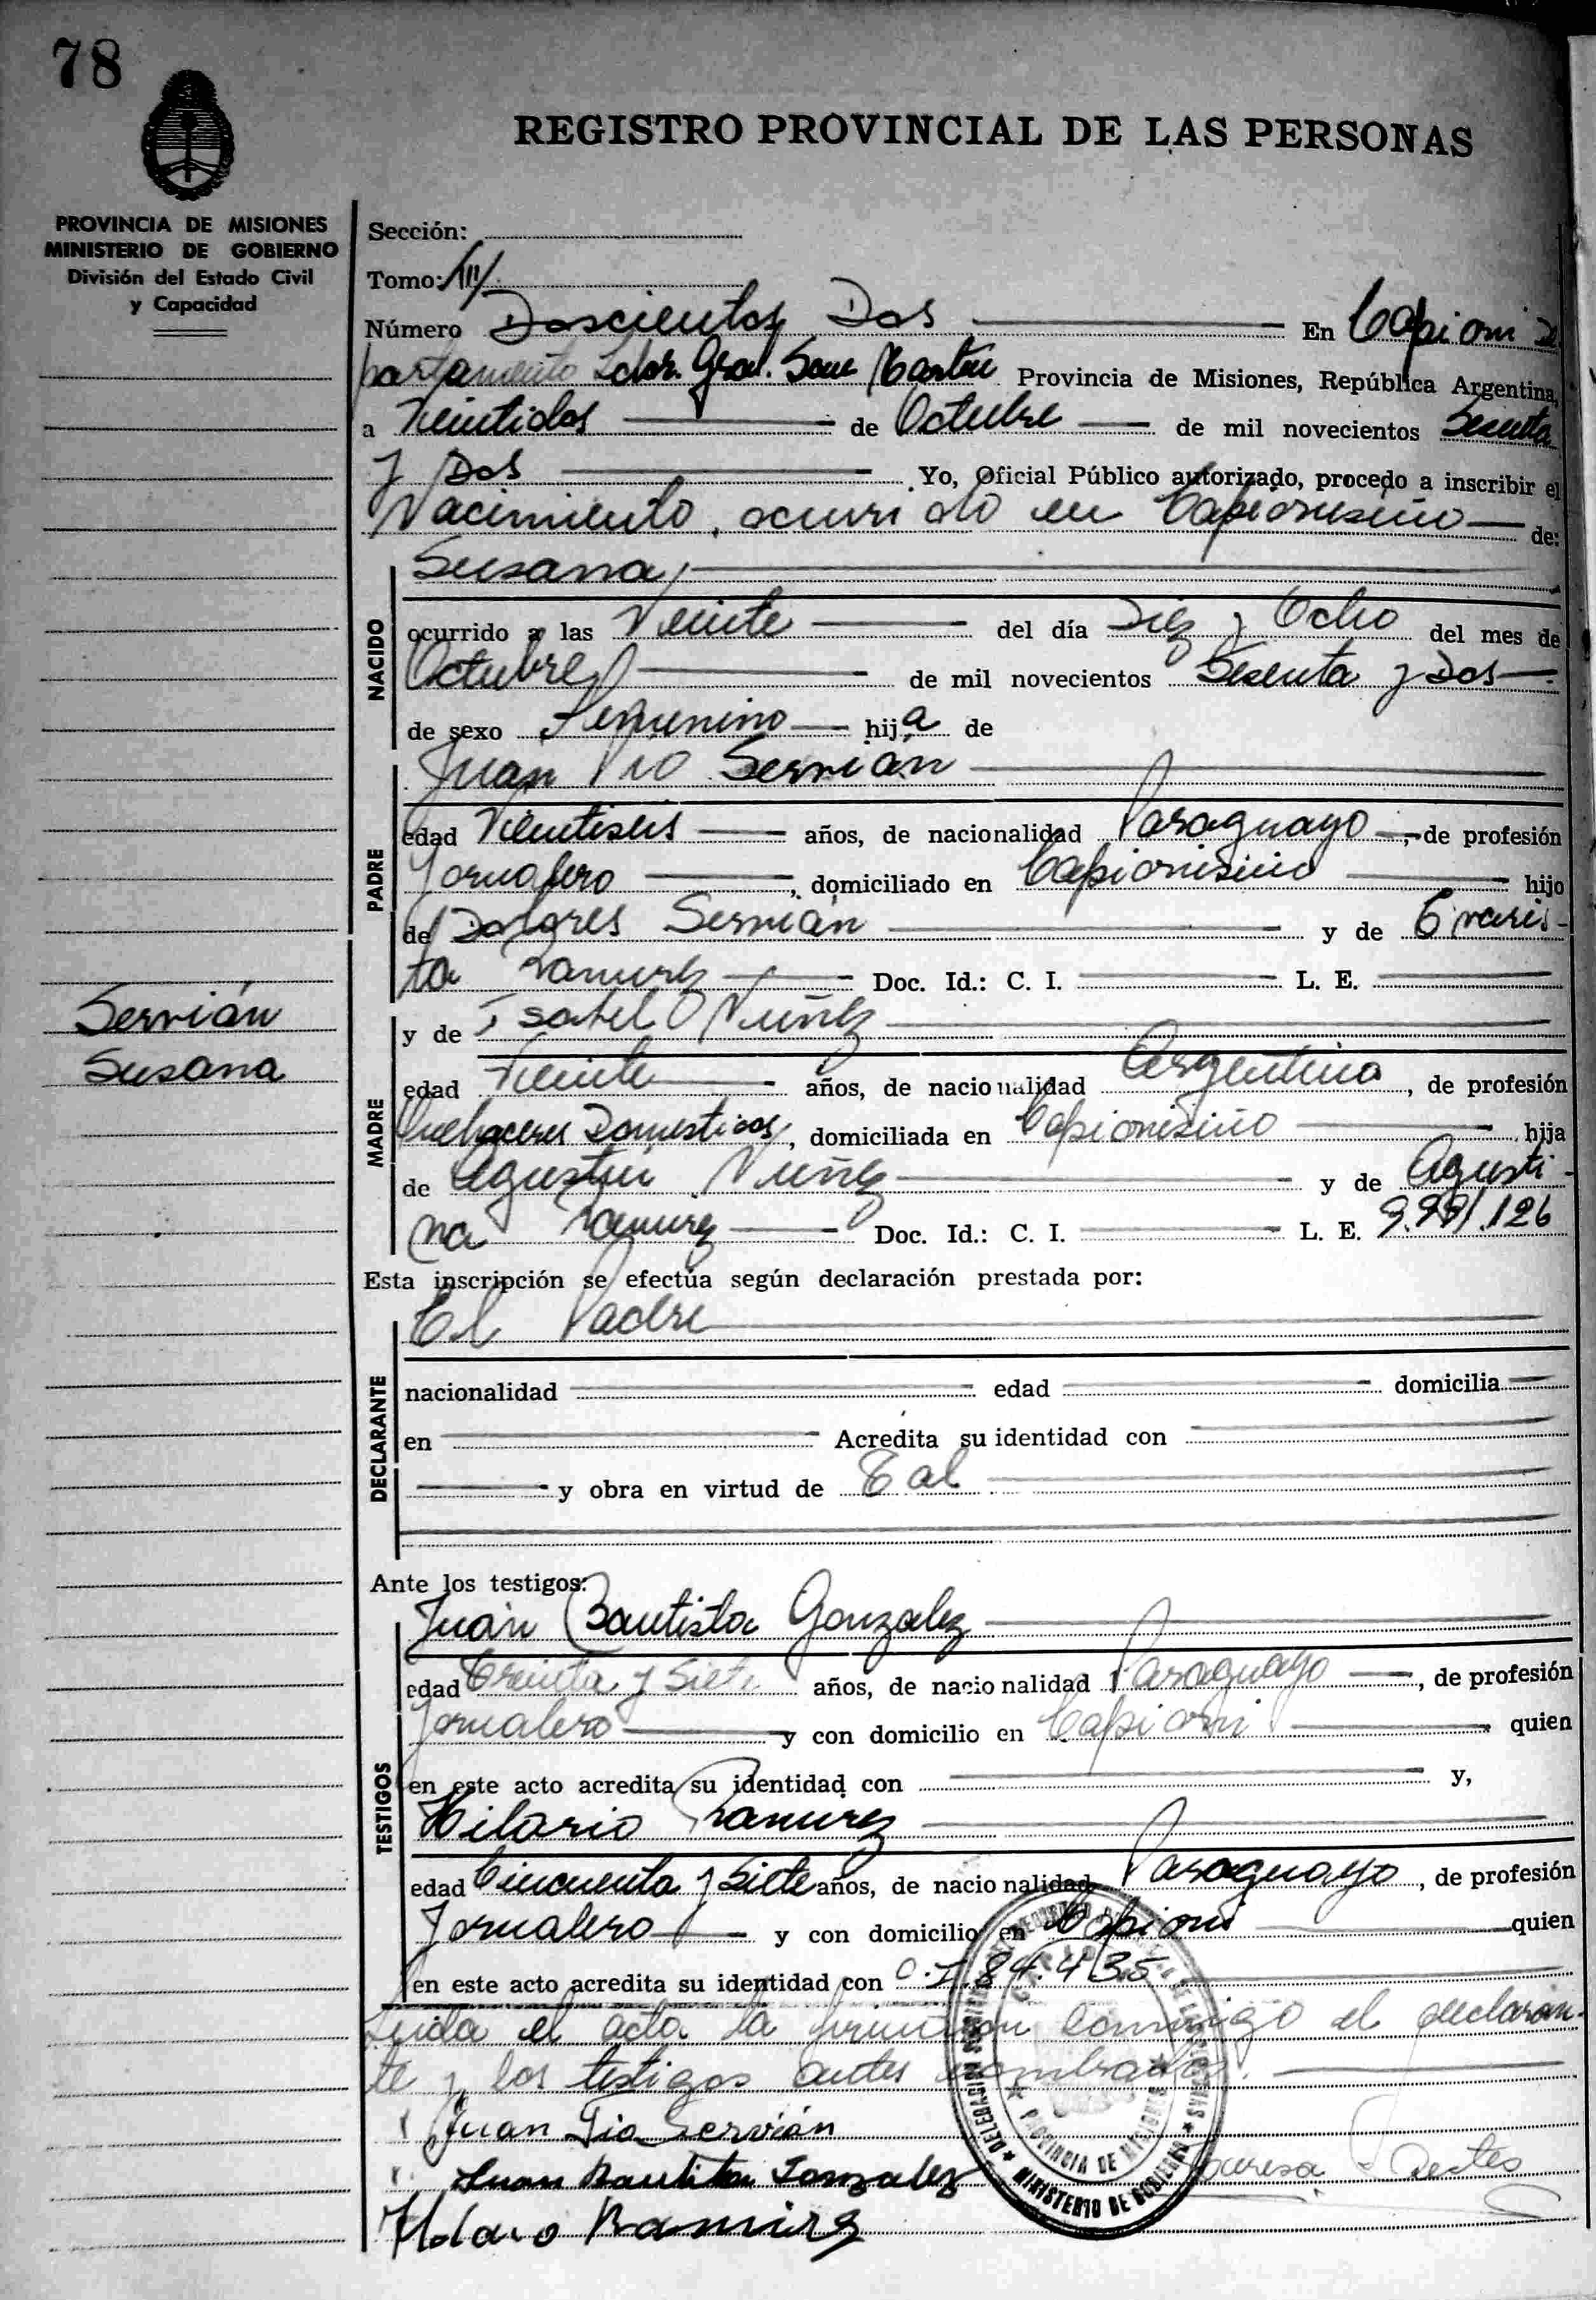 78
REGISTRO PROVINCIAL DE LAS PERSONAS
PROVINCIA DE MISIONES
MINISTERIO DE GOBIERNO
División del Estado Civil
y Capacidad
Sección:
Tomo: III
Número Doscientos Dos En Capioni De
partamento Ldor. Gral. San Martin Provincia de Misiones, República Argentina,
a Veintidos de Octubre de mil novecientos Sesenta
y Dos Yo, Oficial Público autorizado, procedo a inscribir el
Nacimiento, ocurrido en Capionisiño de:
NACIDO
Susana
ocurrido a las Veinte del día Diez y Ocho del mes de
Octubre de mil novecientos Sesenta y Dos
de sexo Femenino hija de
PADRE
Juan Pio Servián
edad Veintiseis años, de nacionalidad Paraguayo, de profesión
Jornalero, domiciliado en Capionisiño hijo
de Dolores Servián y de Evaris-
ta Ramirez Doc. Id.: C. I. L. E.
Servián
Susana
MADRE
y de Isabel Nuñez
edad Veinte años, de nacionalidad Argentina, de profesión
Quehaceres Domesticos, domiciliada en Capionisiño hija
de Agustin Nuñez y de Agusti-
na Ramirez Doc. Id.: C. I. L. E. 126
Esta inscripción se efectúa según declaración prestada por:
DECLARANTE
El Padre
nacionalidad edad domicilia
en Acredita su identidad con
y obra en virtud de Tal
Ante los testigos:
TESTIGOS
Juan Bautista Gonzalez
edad Treinta y Siete años, de nacionalidad Paraguayo, de profesión
Jornalero y con domicilio en Capioni quien
en este acto acredita su identidad con y,
Hilario Ramirez
edad Cincuenta y Siete años, de nacionalidad Paraguayo, de profesión
Jornalero y con domicilio en Capioni quien
en este acto acredita su identidad con C.I. 84.435
Leida el acta la firman conmigo el declaran-
te y los testigos antes nombrados.
Juan Pio Servián
Juan Bautita Gonzalez
Ramirez
PROVINCIA DE MISIONES
MINISTERIO DE GOBIERNO